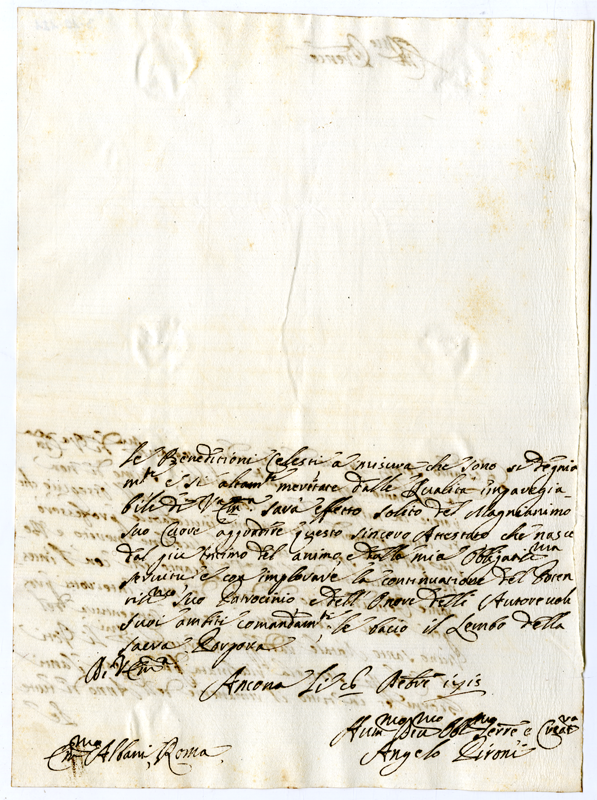 le Benedittioni Celesti à misura che sono si degnia
mte e si altamte meritate dalle Qualità impareggia-
bili di V. Emza sarà effetto solito del Magnanimo
suo Cuore aggradire questo sincero Attestato che nasce
dal più intimo del animo, e dalla mia Obligatissima
servitù e con implorare la continuatione del Poten
tissimo suo Patrocinio e dell'Onore delli Autorevoli
suoi ambiti comandamti le bacio il Lembo della
sacra Porpora
Di V. Emza
Ancona li 26 Xbre 1713
Humo Devmo Obligmo Serre e Creatra
Angelo Pironi
Emmo Albani, Roma